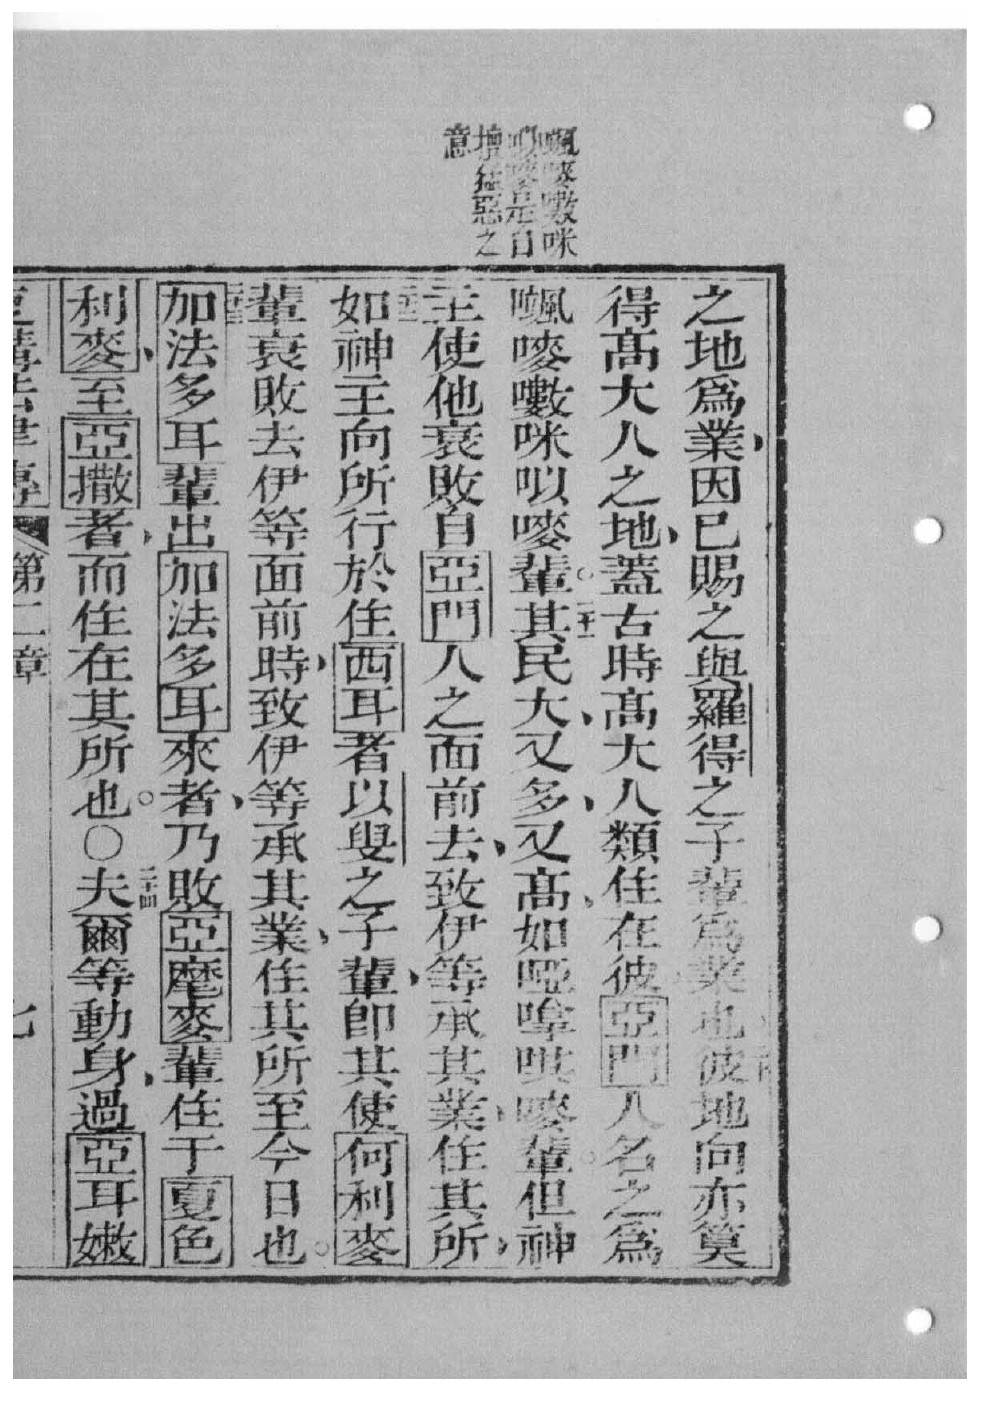 颽嘜嚽咪
㕥嘜是自
壇猛惡之
意
之地爲業因已賜之與羅得之子輩爲業也彼地向亦筭
得高大人之地蓋古時高大人類住在彼亞門人名之爲
颽嘜嚽咪㕥嘜輩其民大又多又高如啞嗱哄嘜輩但神
主使他衰敗自亞門人之面前去致伊等承其業住其所
如神主向所行於住西耳者以叟之子輩卽其使何利麥
輩衰敗去伊等面前時致伊等承其業住其所至今日也
加法多耳輩出加法多耳來者乃敗亞麾麥輩住于夏色
利麥至亞撒者而住在其所也○夫爾等動身過亞耳嫩
第二章
七